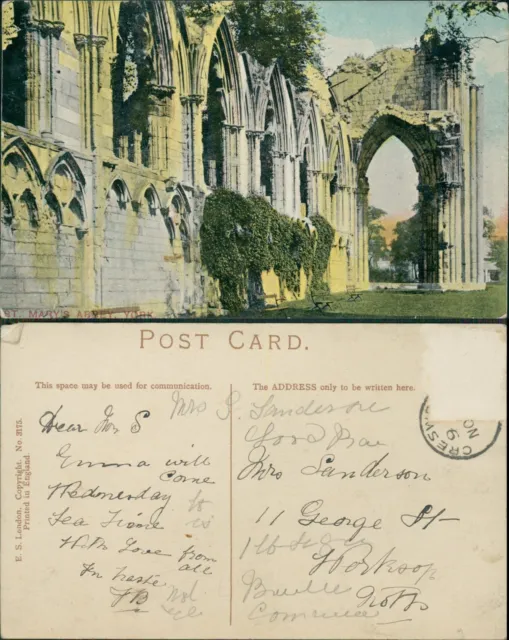 ST. MARY'S ABBEY, YORK
POST CARD.
This space may be used for communication.
The ADDRESS only to be written here.
E. S. London. Copyright. No. 3175.
Printed in England.
Dear Mrs S
Emma will
come
Wednesday to
Tea Time
With Love from
all
In haste
Mrs Sanderson
Mrs Sanderson
11 George St
Worksop
Notts
CRESW
NO 9